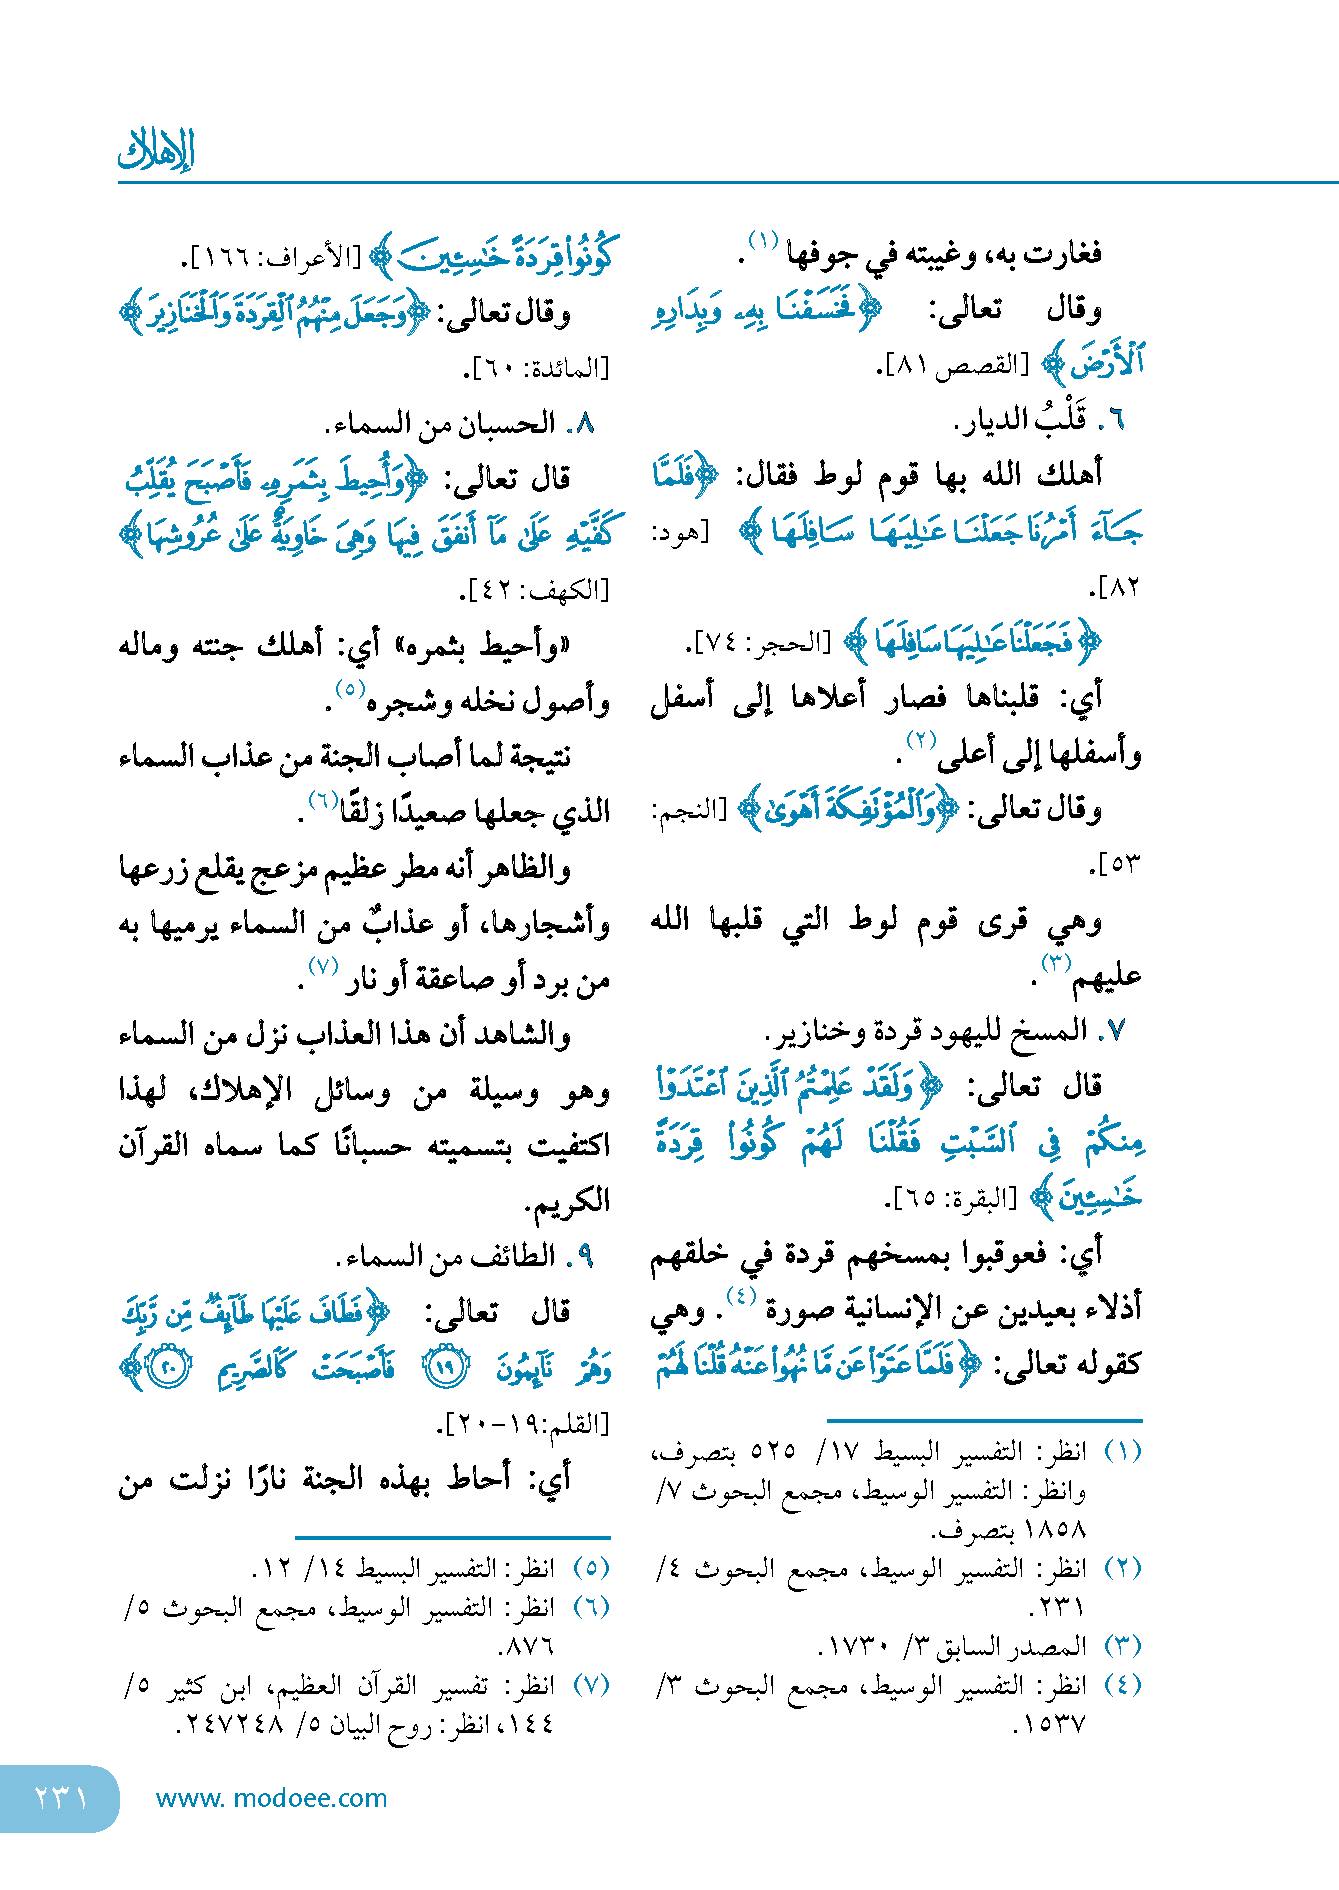 الإهلاك
فغارت به، وغيبته في جوفها(١).
وقال تعالى: ﴿فَخَسَفْنَا بِهِۦ وَبِدَارِهِ
ٱلْأَرْضَ﴾ [القصص ٨١].
٦. قَلْبُ الديار.
أهلك الله بها قوم لوط فقال: ﴿فَلَمَّا
جَآءَ أَمْرُنَا جَعَلْنَا عَٰلِيَهَا سَافِلَهَا﴾ [هود:
٨٢].
﴿فَجَعَلْنَا عَٰلِيَهَا سَافِلَهَا﴾ [الحجر: ٧٤].
أي: قلبناها فصار أعلاها إلى أسفل
وأسفلها إلى أعلى(٢).
وقال تعالى: ﴿وَٱلْمُؤْتَفِكَةَ أَهْوَىٰ﴾ [النجم:
٥٣].
وهي قرى قوم لوط التي قلبها الله
عليهم(٣).
٧. المسخ لليهود قردة وخنازير.
قال تعالى: ﴿وَلَقَدْ عَلِمْتُمُ ٱلَّذِينَ ٱعْتَدَوْا۟
مِنكُمْ فِى ٱلسَّبْتِ فَقُلْنَا لَهُمْ كُونُوا۟ قِرَدَةً
خَٰسِـِٔينَ﴾ [البقرة: ٦٥].
أي: فعوقبوا بمسخهم قردة في خلقهم
أذلاء بعيدين عن الإنسانية صورة(٤). وهي
كقوله تعالى: ﴿فَلَمَّا عَتَوْا۟ عَن مَّا نُهُوا۟ عَنْهُ قُلْنَا لَهُمْ
(١) انظر: التفسير البسيط ١٧/ ٥٢٥ بتصرف،
وانظر: التفسير الوسيط، مجمع البحوث ٧/
١٨٥٨ بتصرف.
(٢) انظر: التفسير الوسيط، مجمع البحوث ٤/
٢٣١.
(٣) المصدر السابق ٣/ ١٧٣٠.
(٤) انظر: التفسير الوسيط، مجمع البحوث ٣/
١٥٣٧.
كُونُوا۟ قِرَدَةً خَٰسِـِٔينَ﴾ [الأعراف: ١٦٦].
وقال تعالى: ﴿وَجَعَلَ مِنْهُمُ ٱلْقِرَدَةَ وَٱلْخَنَازِيرَ﴾
[المائدة: ٦٠].
٨. الحسبان من السماء.
قال تعالى: ﴿وَأُحِيطَ بِثَمَرِهِۦ فَأَصْبَحَ يُقَلِّبُ
كَفَّيْهِ عَلَىٰ مَآ أَنفَقَ فِيهَا وَهِىَ خَاوِيَةٌ عَلَىٰ عُرُوشِهَا﴾
[الكهف: ٤٢].
«وأحيط بثمره» أي: أهلك جنته وماله
وأصول نخله وشجره(٥).
نتيجة لما أصاب الجنة من عذاب السماء
الذي جعلها صعيدًا زلقًا(٦).
والظاهر أنه مطر عظيم مزعج يقلع زرعها
وأشجارها، أو عذابٌ من السماء يرميها به
من برد أو صاعقة أو نار(٧).
والشاهد أن هذا العذاب نزل من السماء
وهو وسيلة من وسائل الإهلاك، لهذا
اكتفيت بتسميته حسبانًا كما سماه القرآن
الكريم.
٩. الطائف من السماء.
قال تعالى: ﴿فَطَافَ عَلَيْهَا طَآئِفٌ مِّن رَّبِّكَ
وَهُمْ نَآئِمُونَ ١٩ فَأَصْبَحَتْ كَٱلصَّرِيمِ ٢٠﴾
[القلم:١٩-٢٠].
أي: أحاط بهذه الجنة نارًا نزلت من
(٥) انظر: التفسير البسيط ١٤/ ١٢.
(٦) انظر: التفسير الوسيط، مجمع البحوث ٥/
٨٧٦.
(٧) انظر: تفسير القرآن العظيم، ابن كثير ٥/
١٤٤، انظر: روح البيان ٥/ ٢٤٧٢٤٨.
٢٣١ www. modoee.com